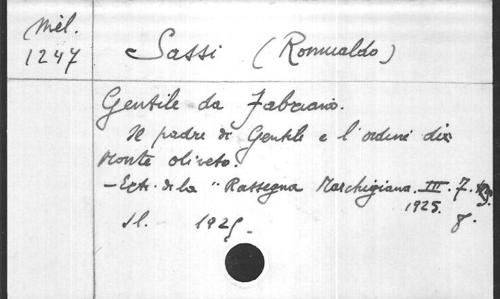 Mél.
1247
Sassi (Romualdo)
Gentile da Fabriano.
Il padre di Gentile e l'ordine di
Monte oliveto.
— Extr. de la "Rassegna Marchigiana. III. 7.
1925. 8.
Il. 1925.